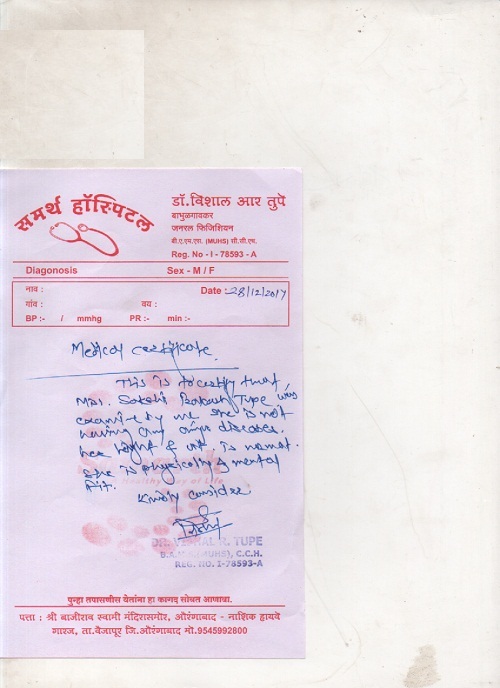 समर्थ हॉस्पिटल
डॉ.विशाल आर तुपे
बाभुळगावकर
जनरल फिजिशियन
बी.ए.एम.एस. (MUHS) सी.सी.एच.
Reg. No - I - 78593 - A
Diagonosis Sex - M / F
नाव : Date : 28/12/2017
गांव : वय :
BP :- / mmhg PR :- min :-
Medical certificate
This is to certify that
Sakshi Tupe was
by me she is not
having any disease.
her hight & wt is
she is physically & mental
Fit.
Kindly consider
DR. VISHAL R. TUPE
B.A.M.S.(MUHS), C.C.H.
REG. NO. I-78593-A
पुन्हा तपासणीस येतांना हा कागद सोबत आणावा.
पत्ता : श्री बाजीराव स्वामी मंदिरासमोर, औरंगाबाद - नाशिक हायवे
गारज, ता.वैजापूर जि.औरंगाबाद मो.9545992800